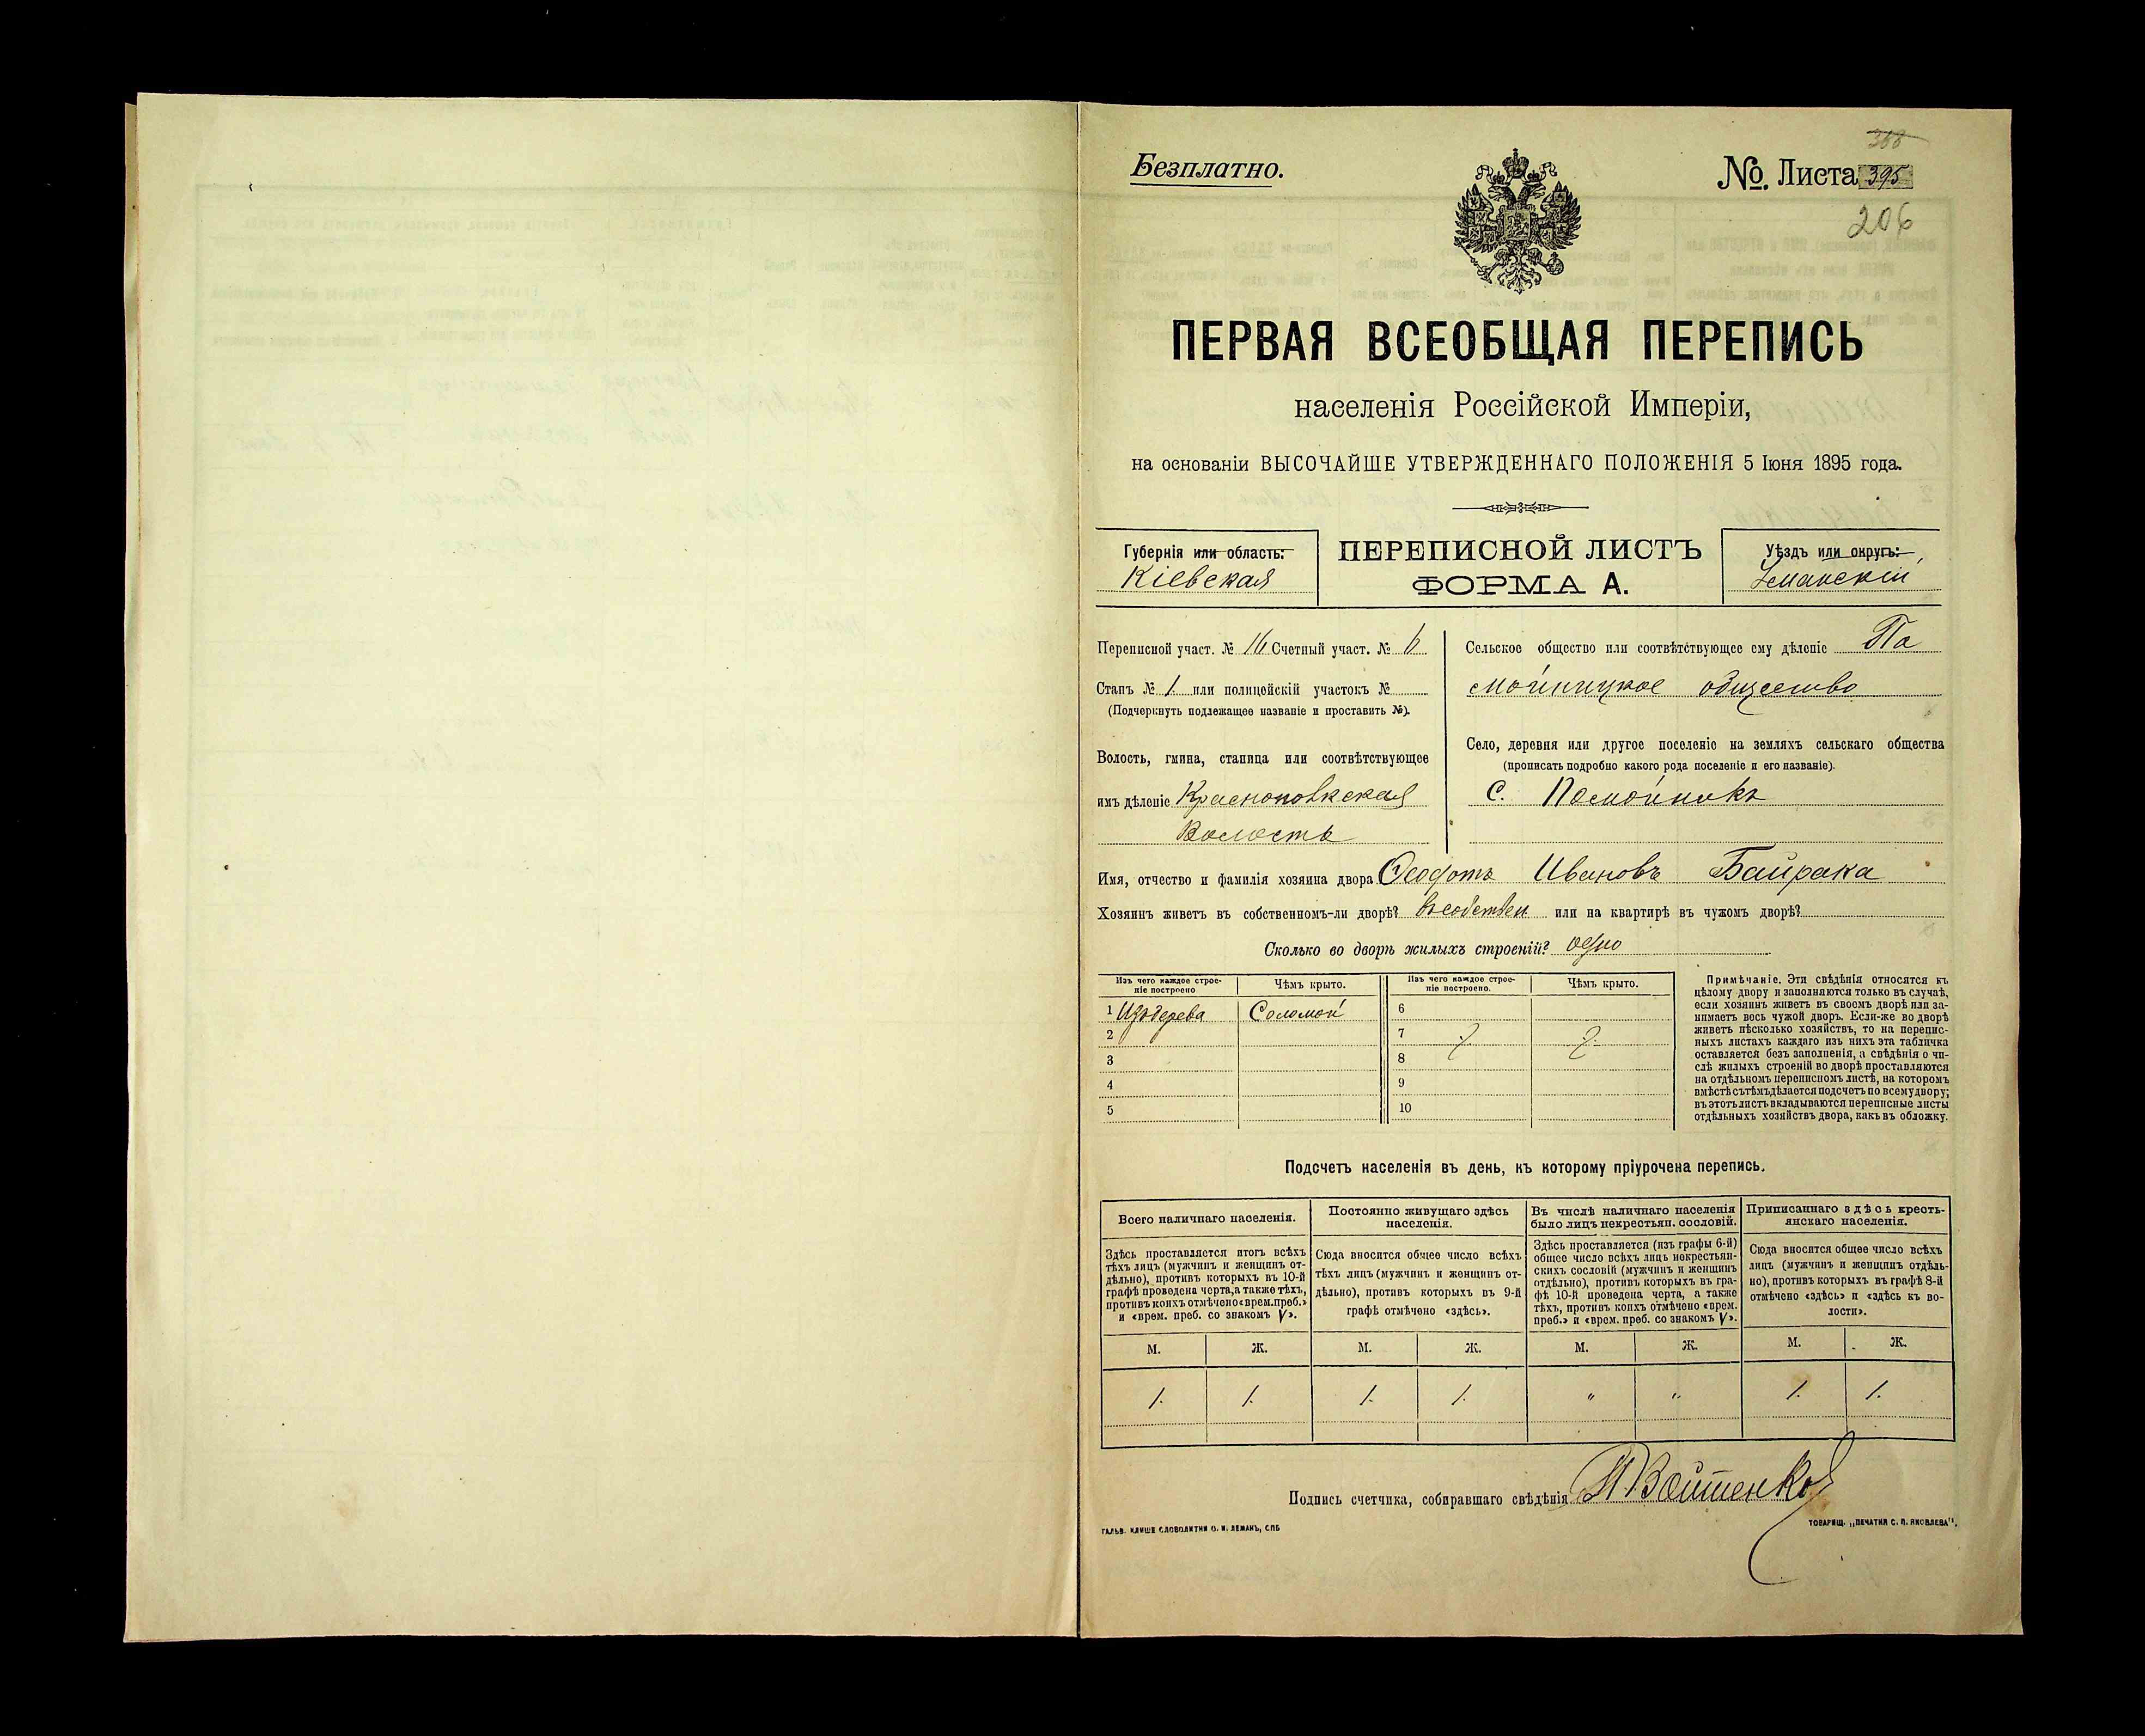 Безплатно.
368
№. Листа 395
206
ПЕРВАЯ ВСЕОБЩАЯ ПЕРЕПИСЬ
населенія Россійской Имперіи,
на основаніи ВЫСОЧАЙШЕ УТВЕРЖДЕННАГО ПОЛОЖЕНІЯ 5 Іюня 1895 года.
Губернія или область:
Кіевская
ПЕРЕПИСНОЙ ЛИСТЪ
ФОРМА А.
Уѣздъ или округъ:
Уманскій
Переписной участ. № 16 Счетный участ. № 6
Станъ № 1. или полицейскій участокъ №
(Подчеркнуть подлежащее названіе и проставить №).
Волость, гмина, станица или соотвѣтствующее
имъ дѣленіе Краснополкская
Волость
Сельское общество или соотвѣтствующее ему дѣленіе Па
мойницкое общество
Село, деревня или другое поселеніе на земляхъ сельскаго общества
(прописать подробно какого рода поселеніе и его названіе).
С. Помойникъ
Имя, отчество и фамилія хозяина двора Ѳеодотъ Ивановъ Байрака
Хозяинъ живетъ въ собственномъ-ли дворѣ? въ собствен или на квартирѣ въ чужомъ дворѣ?
Сколько во дворѣ жилыхъ строеній? одно
Изъ чего каждое строе-
ніе построено
Чѣмъ крыто.
Изъ чего каждое строе-
ніе построено.
Чѣмъ крыто.
1 Изъ дерева Соломой
2
3
4
5
6
7
8
9
10
Примѣчаніе. Эти свѣдѣнія относятся къ
цѣлому двору и заполняются только въ случаѣ,
если хозяинъ живетъ въ своемъ дворѣ или за-
нимаетъ весь чужой дворъ. Если-же во дворѣ
живетъ нѣсколько хозяйствъ, то на перепис-
ныхъ листахъ каждаго изъ нихъ эта табличка
оставляется безъ заполненія, а свѣдѣнія о чи-
слѣ жилыхъ строеній во дворѣ проставляются
на отдѣльномъ переписномъ листѣ, на которомъ
вмѣстѣ съ тѣмъ дѣлается подсчетъ по всему двору;
въ этотъ листъ вкладываются переписные листы
отдѣльныхъ хозяйствъ двора, какъ въ обложку.
Подсчетъ населенія въ день, къ которому пріурочена перепись.
Всего наличнаго населенія.
Здѣсь проставляется итогъ всѣхъ
тѣхъ лицъ (мужчинъ и женщинъ от-
дѣльно), противъ которыхъ въ 10-й
графѣ проведена черта, а также тѣхъ,
противъ коихъ отмѣчено «врем. преб.»
и «врем. преб. со знакомъ V».
Постоянно живущаго здѣсь
населенія.
Сюда вносится общее число всѣхъ
тѣхъ лицъ (мужчинъ и женщинъ от-
дѣльно), противъ которыхъ въ 9-й
графѣ отмѣчено «здѣсь».
Въ числѣ наличнаго населенія
было лицъ некрестьян. сословій.
Здѣсь проставляется (изъ графы 6-й)
общее число всѣхъ лицъ некрестьян-
скихъ сословій (мужчинъ и женщинъ
отдѣльно), противъ которыхъ въ гра-
фѣ 10-й проведена черта, а также
тѣхъ, противъ коихъ отмѣчено «врем.
преб.» и «врем. преб. со знакомъ V».
Приписаннаго здѣсь кресть-
янскаго населенія.
Сюда вносится общее число всѣхъ
лицъ (мужчинъ и женщинъ отдѣль-
но), противъ которыхъ въ графѣ 8-й
отмѣчено «здѣсь» и «здѣсь къ во-
лости».
М. Ж. М. Ж. М. Ж. М. Ж.
1. 1. 1. 1. " " 1. 1.
Подпись счетчика, собиравшаго свѣдѣнія Войтенко
ГАЛЬВ. КЛИШЕ СЛОВОЛИТНИ О. И. ЛЕМАНЪ, СПБ
ТОВАРИЩ. „ПЕЧАТНЯ С. П. ЯКОВЛЕВА".